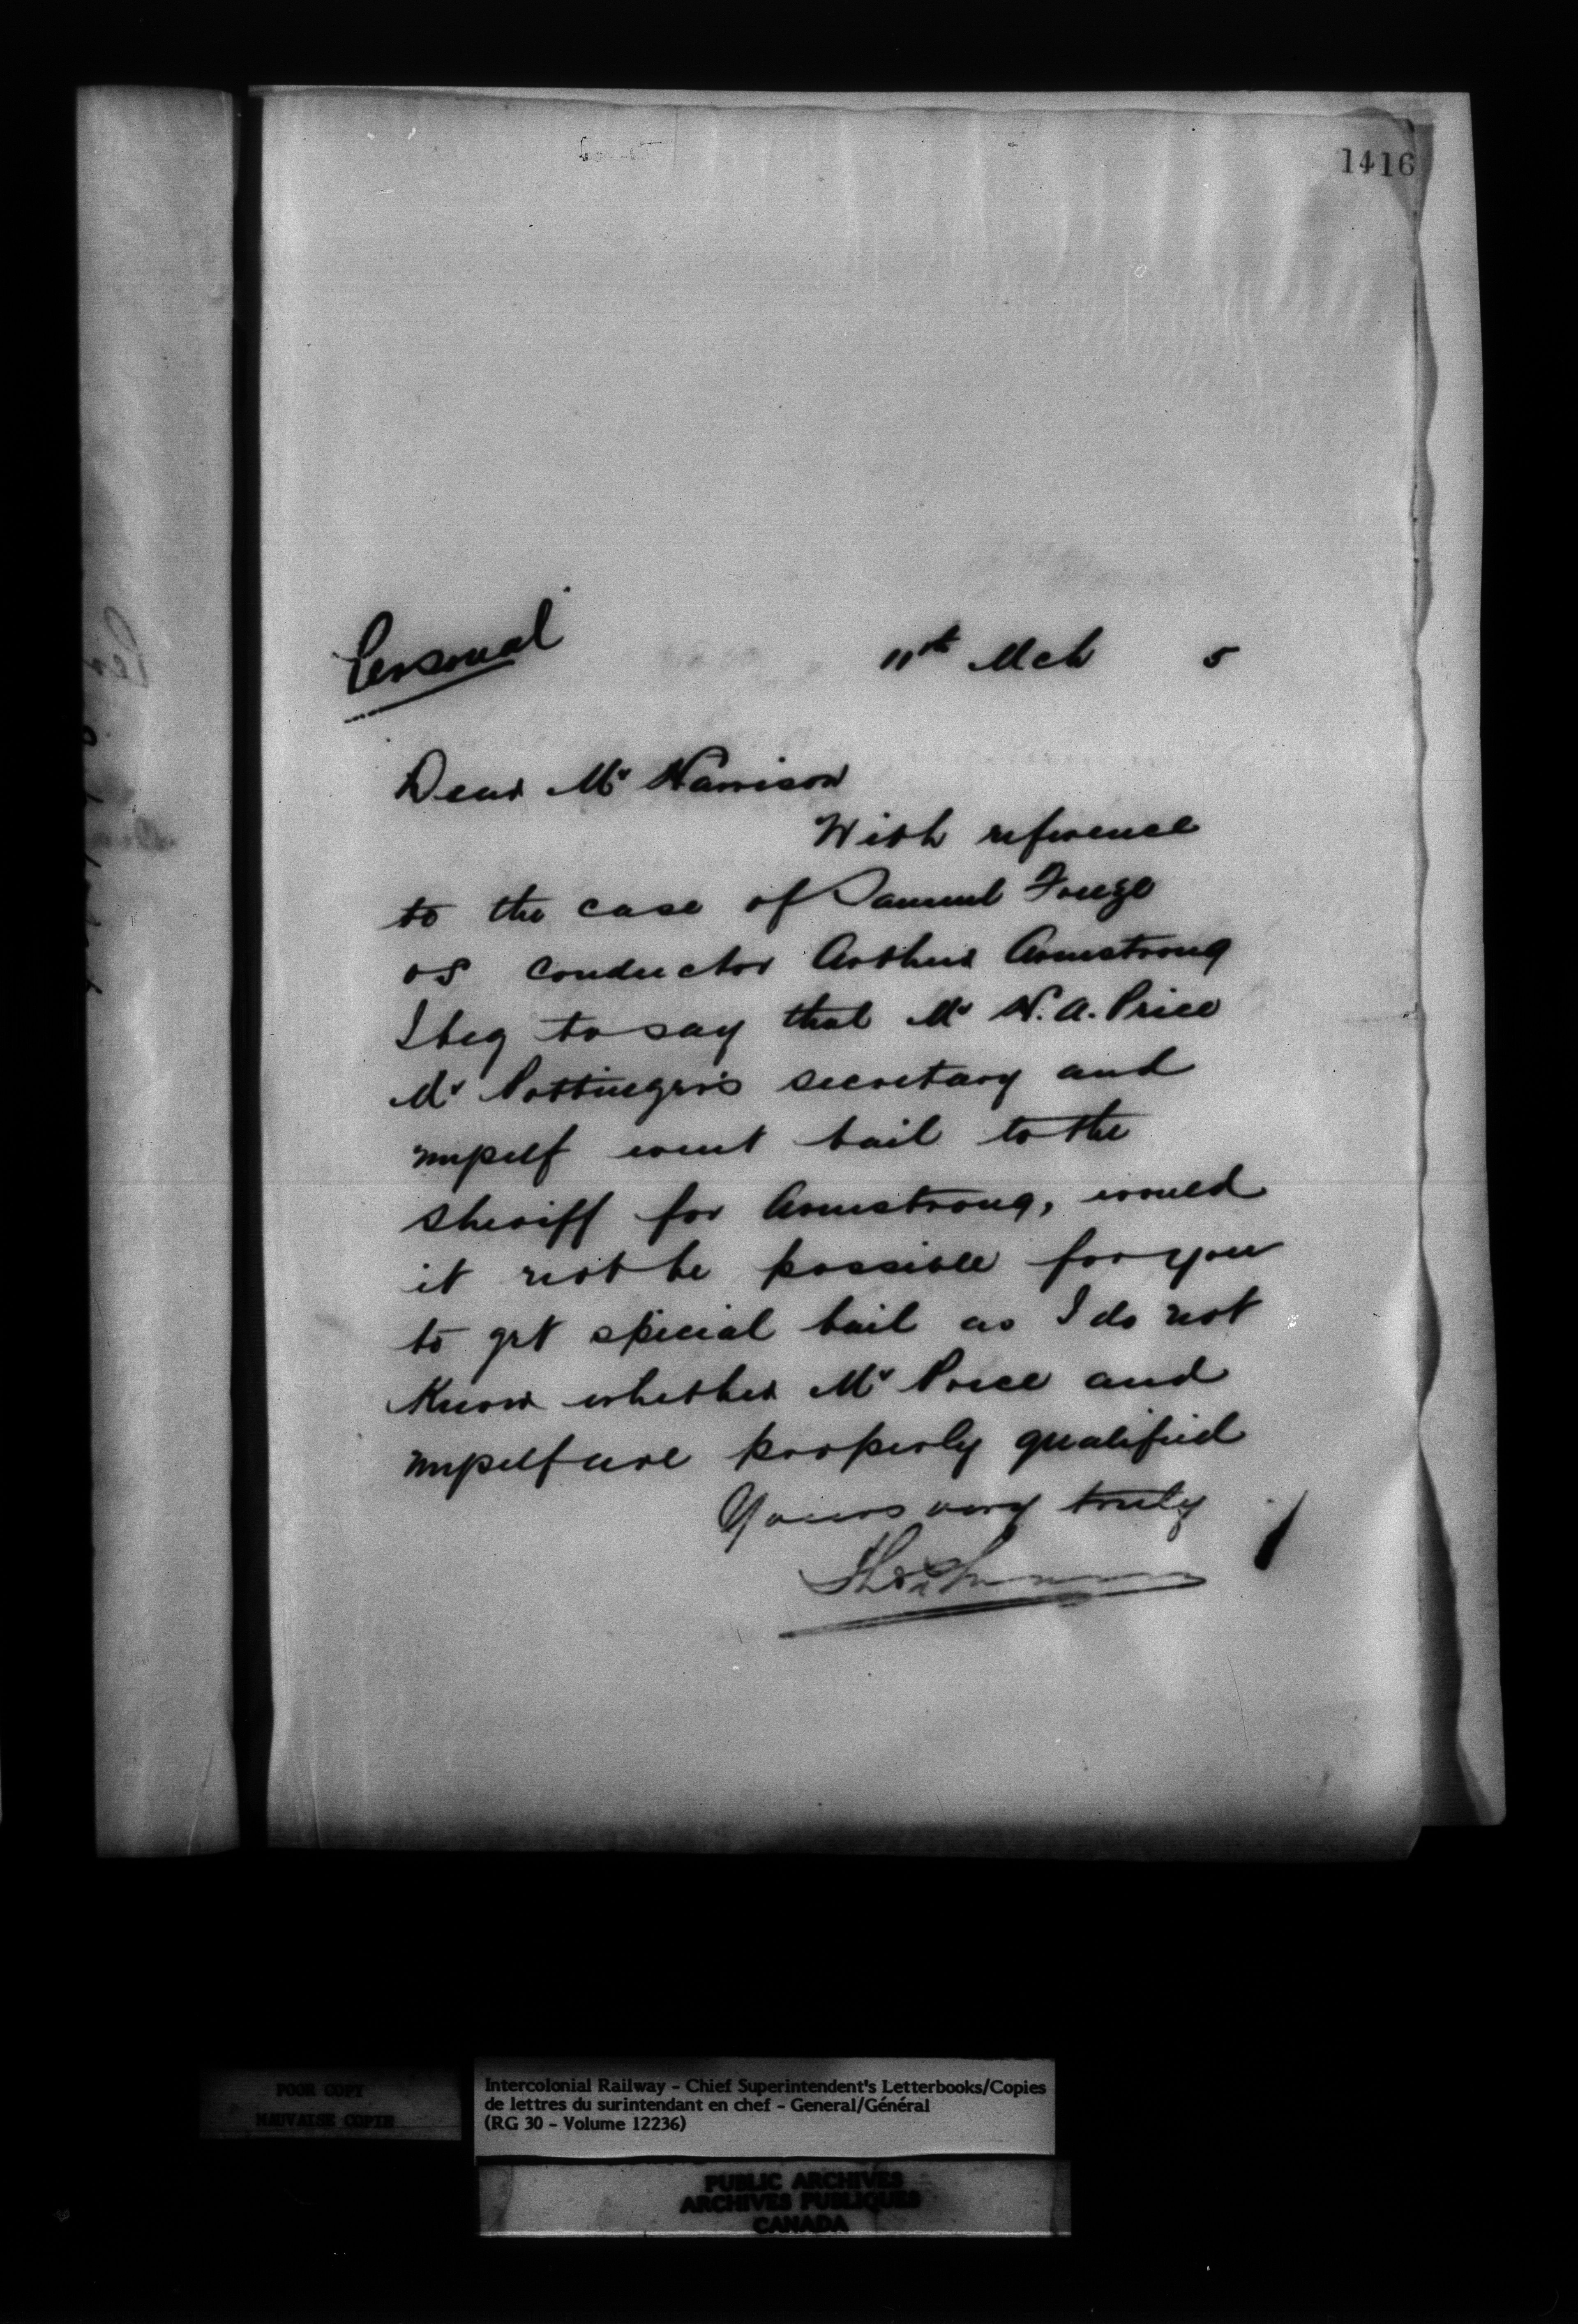 1416
Personal
11th Mch 5
Dear Mr Harrison
With reference
to the case of Samuel
vs conductor Arthur Armstrong
I beg to say that Mr H. A. Price
Mr Pottinger's secretary and
myself went bail to the
sheriff for Armstrong, would
it not be possible for you
to get special bail as I do not
know whether Mr Price and
myself are properly qualified
Yours very truly
POOR COPY
MAUVAISE COPIE
Intercolonial Railway - Chief Superintendent's Letterbooks/Copies
de lettres du surintendant en chef - General/Général
(RG 30 - Volume 12236)
PUBLIC ARCHIVES
ARCHIVES PUBLIQUES
CANADA